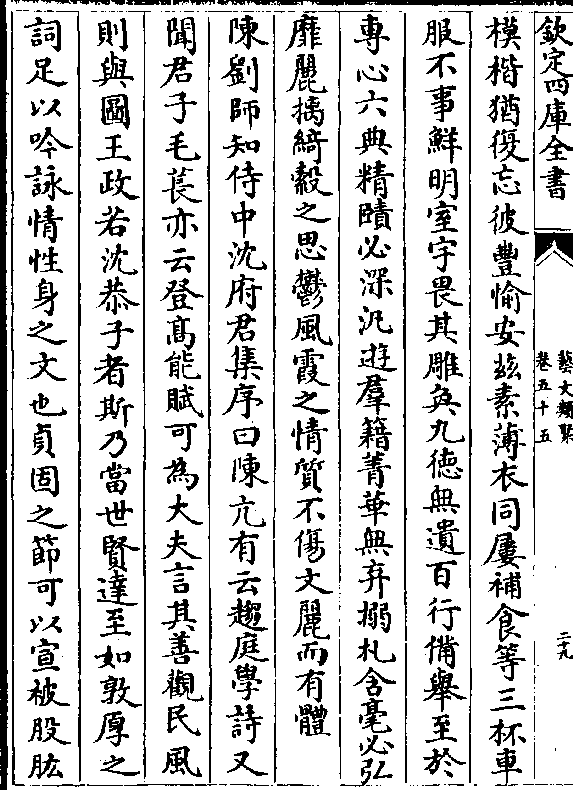 欽定四庫全書
藝文類聚
卷五十五
二九
模楷猶復忘彼豐愉安兹素薄衣同屢補食等三杯車
服不事鮮明室宇畏其雕奐九德無遺百行備舉至於
專心六典精賾必深汎遊羣籍菁華無弃搦札含毫必弘
靡麗摛綺縠之思鬱風霞之情質不傷文麗而有體
陳劉師知侍中沈府君集序曰陳亢有云趨庭學詩又
聞君子毛萇亦云登髙能賦可為大夫言其善觀民風
則與圖王政若沈恭子者斯乃當世賢達至如敦厚之
詞足以吟詠情性身之文也貞固之節可以宣被股肱